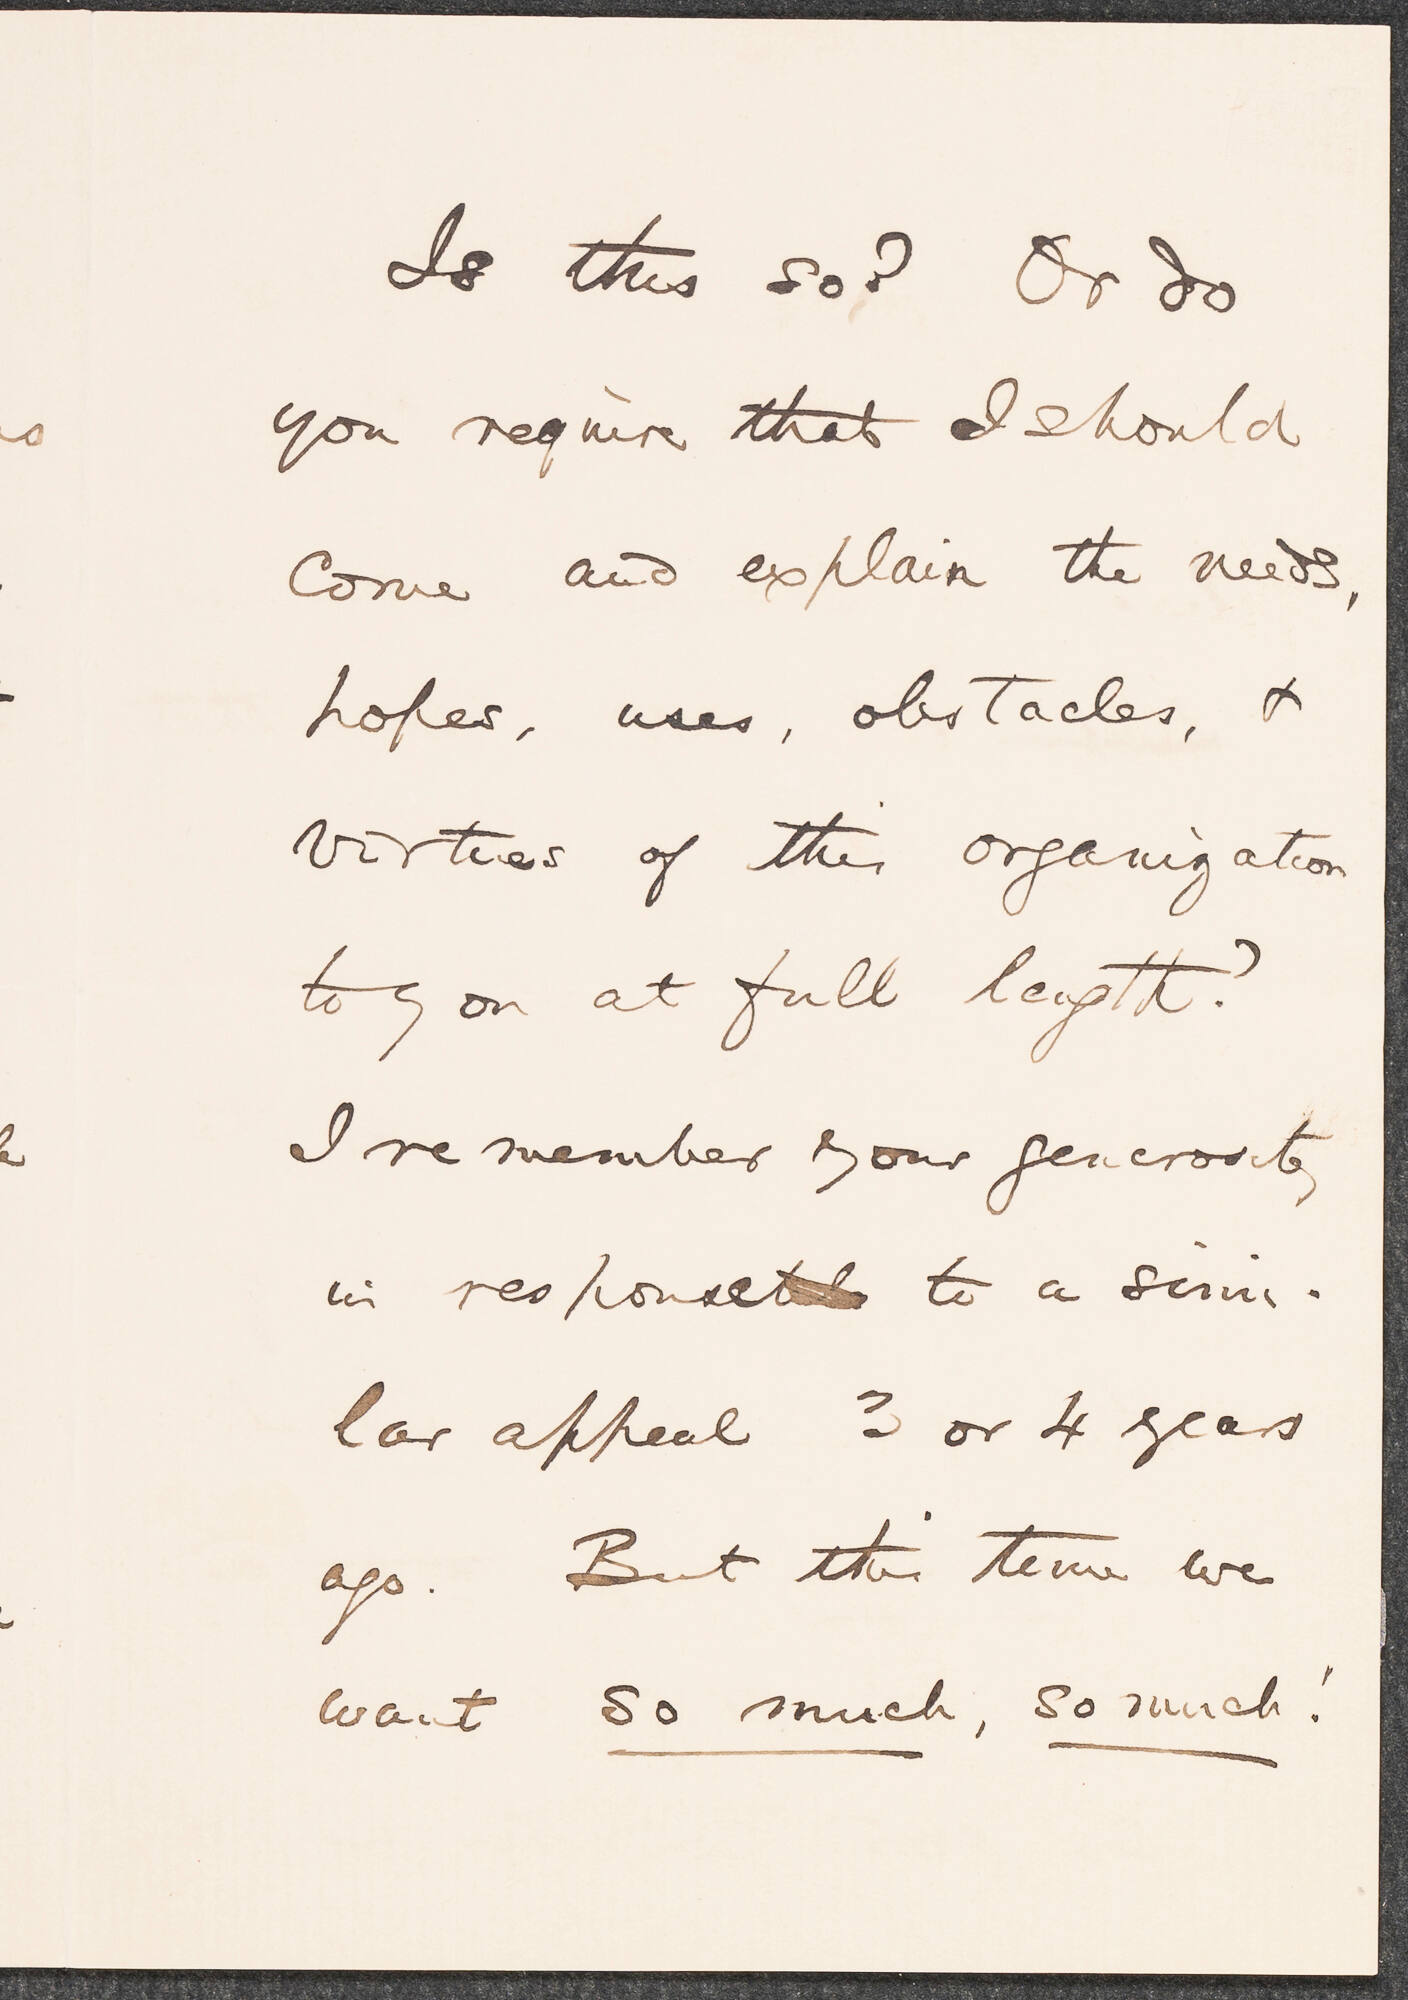 Is this so? Or do
you require that I should
come and explain the needs,
hopes, uses, obstacles, &
virtues of this organization
to you at full length?
I remember your generosity
in response to a simi-
lar appeal 3 or 4 years
ago. But this time we
want so much, so much!